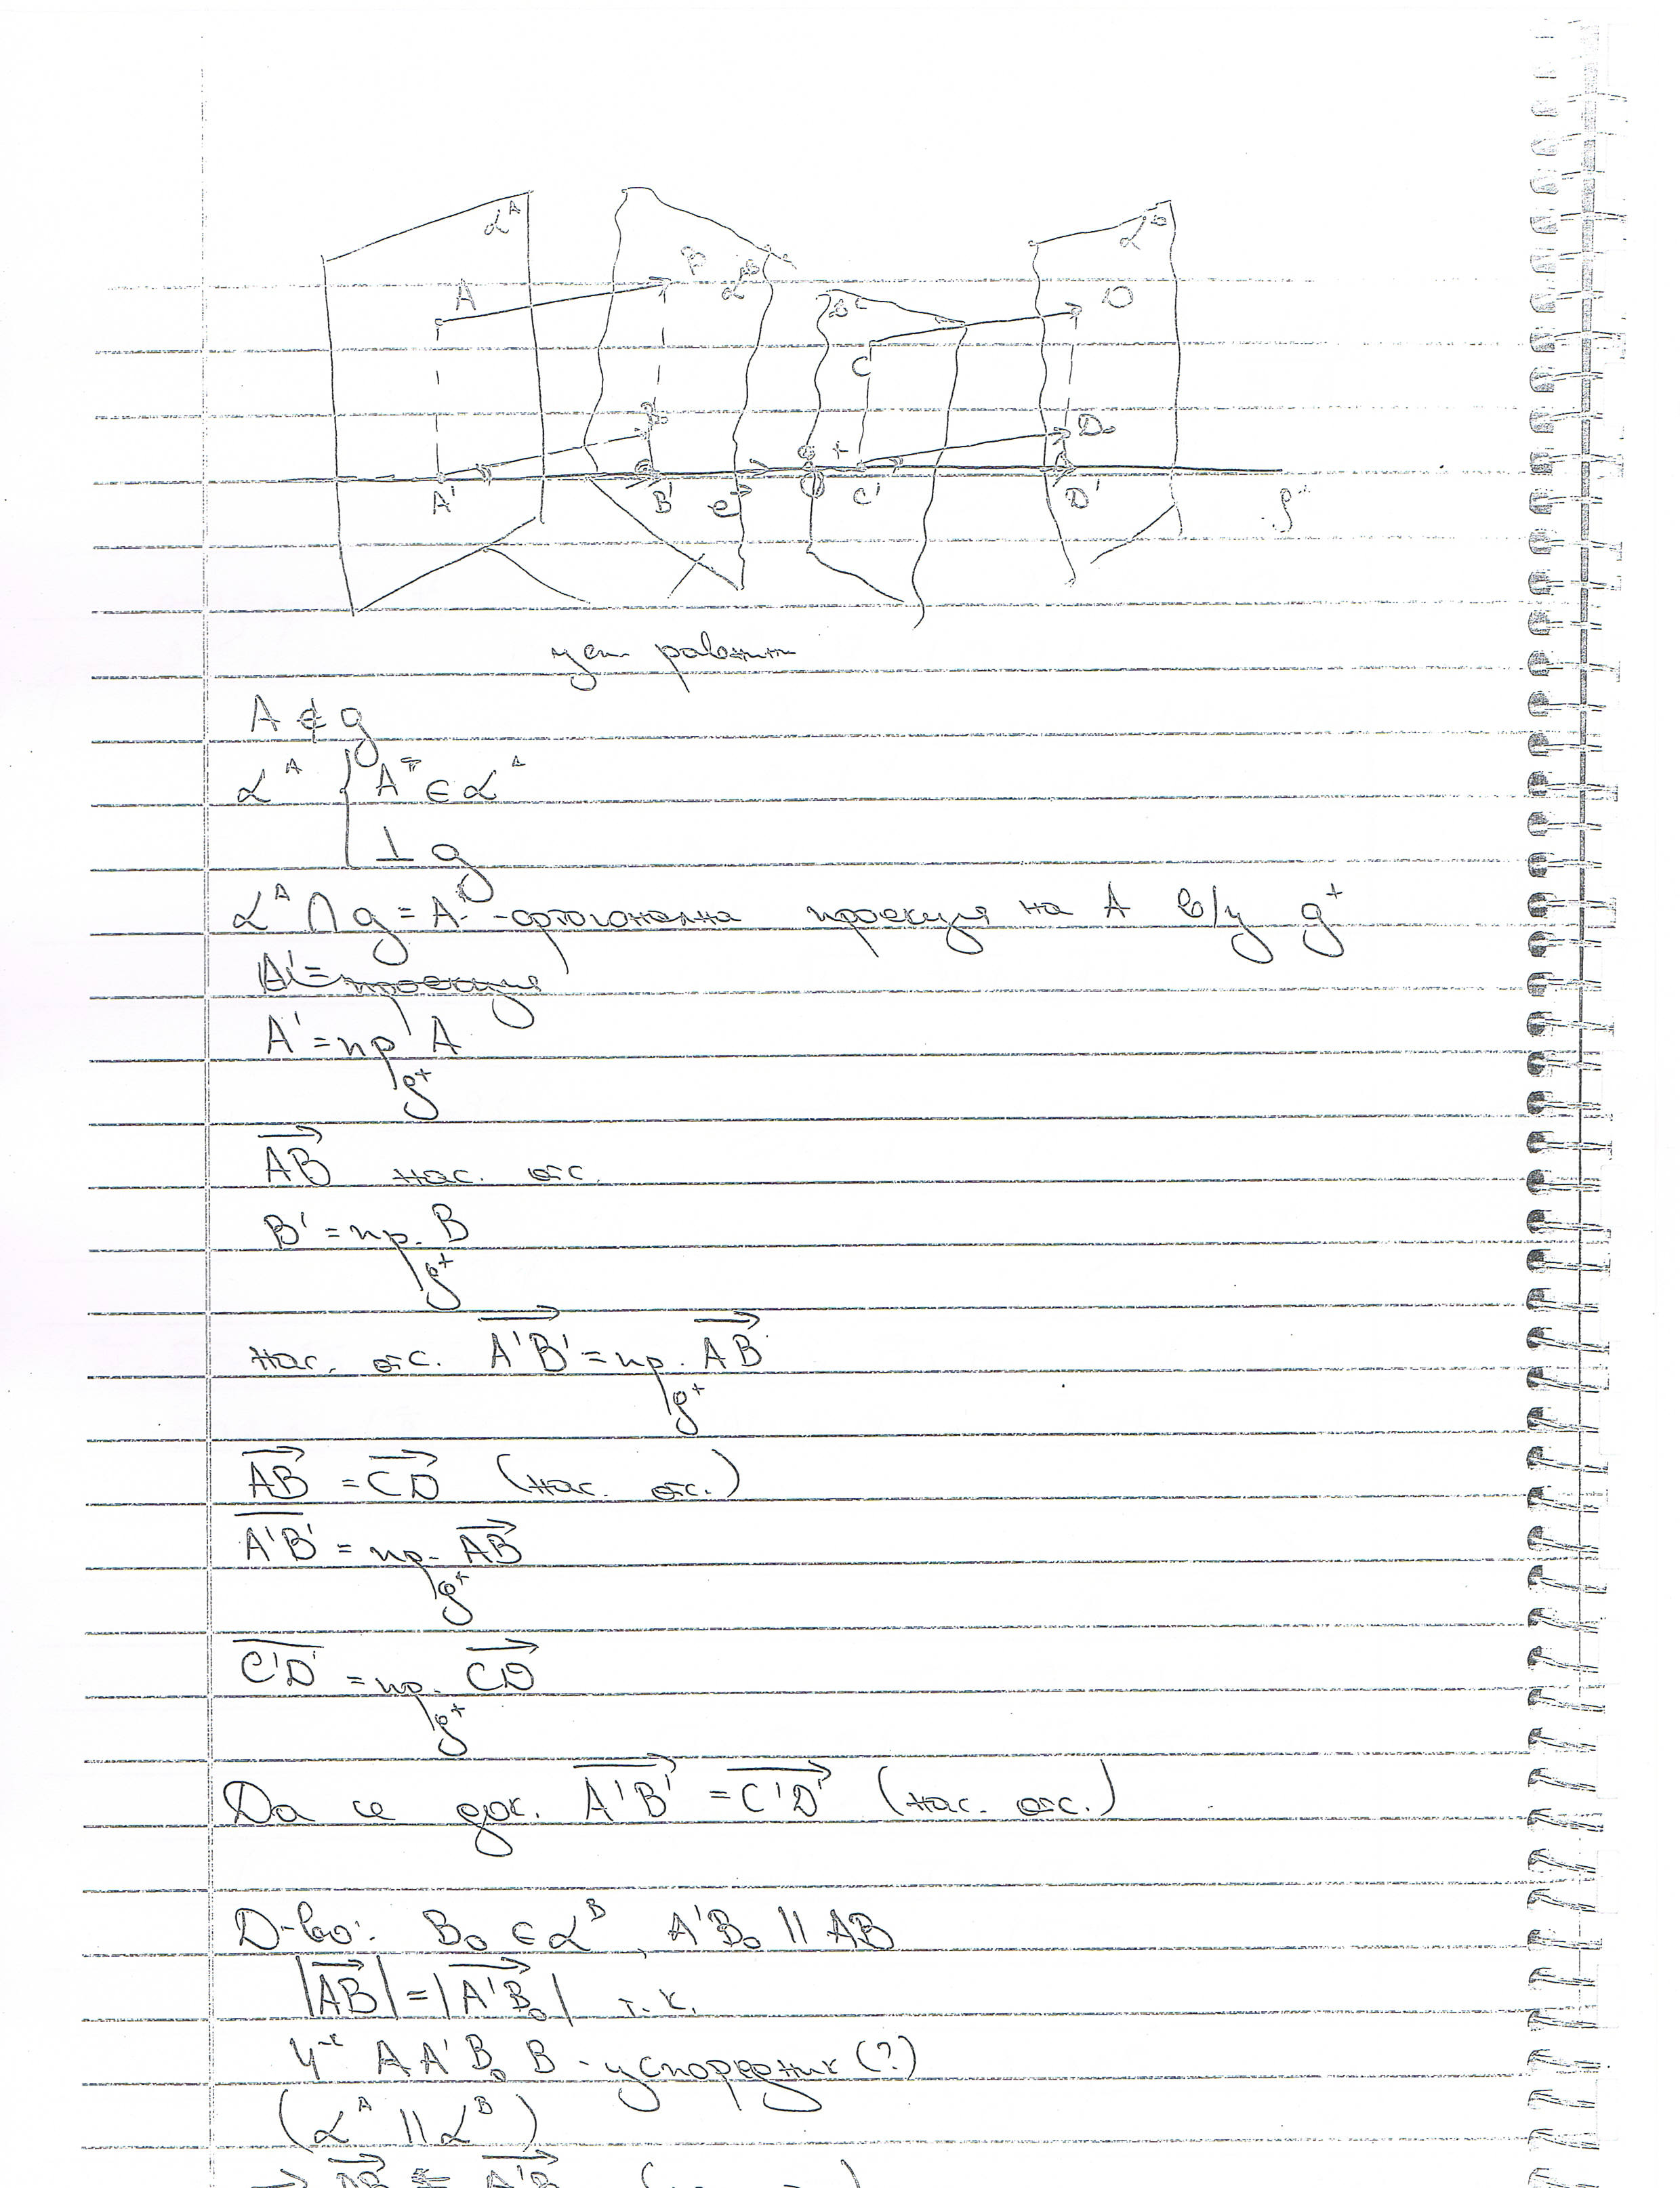 α^A
A
B
α^B
α^C
C
α^D
D
B₀
D₀
A'
B'
e
O
+
C'
D'
g⁺
A ∉ g
α^A { A ∈ α^A
⊥ g
α^A ∩ g = A' - ортогонална проекция на A в/у g⁺
A' = проекция
A' = пр A
g⁺
→AB нас. отс.
B' = пр. B
g⁺
нас. отс. →A'B' = пр. →AB
g⁺
→AB = →CD (нас. отс.)
A'B' = пр. →AB
g⁺
C'D' = пр. →CD
g⁺
Да се док. →A'B' = →C'D' (нас. отс.)
Д-во: B₀ ∈ α^B, A'B₀ || AB
|→AB| = |→A'B₀| т.к.
Ч-к AA'B₀B - успоредник (?)
(α^A || α^B)